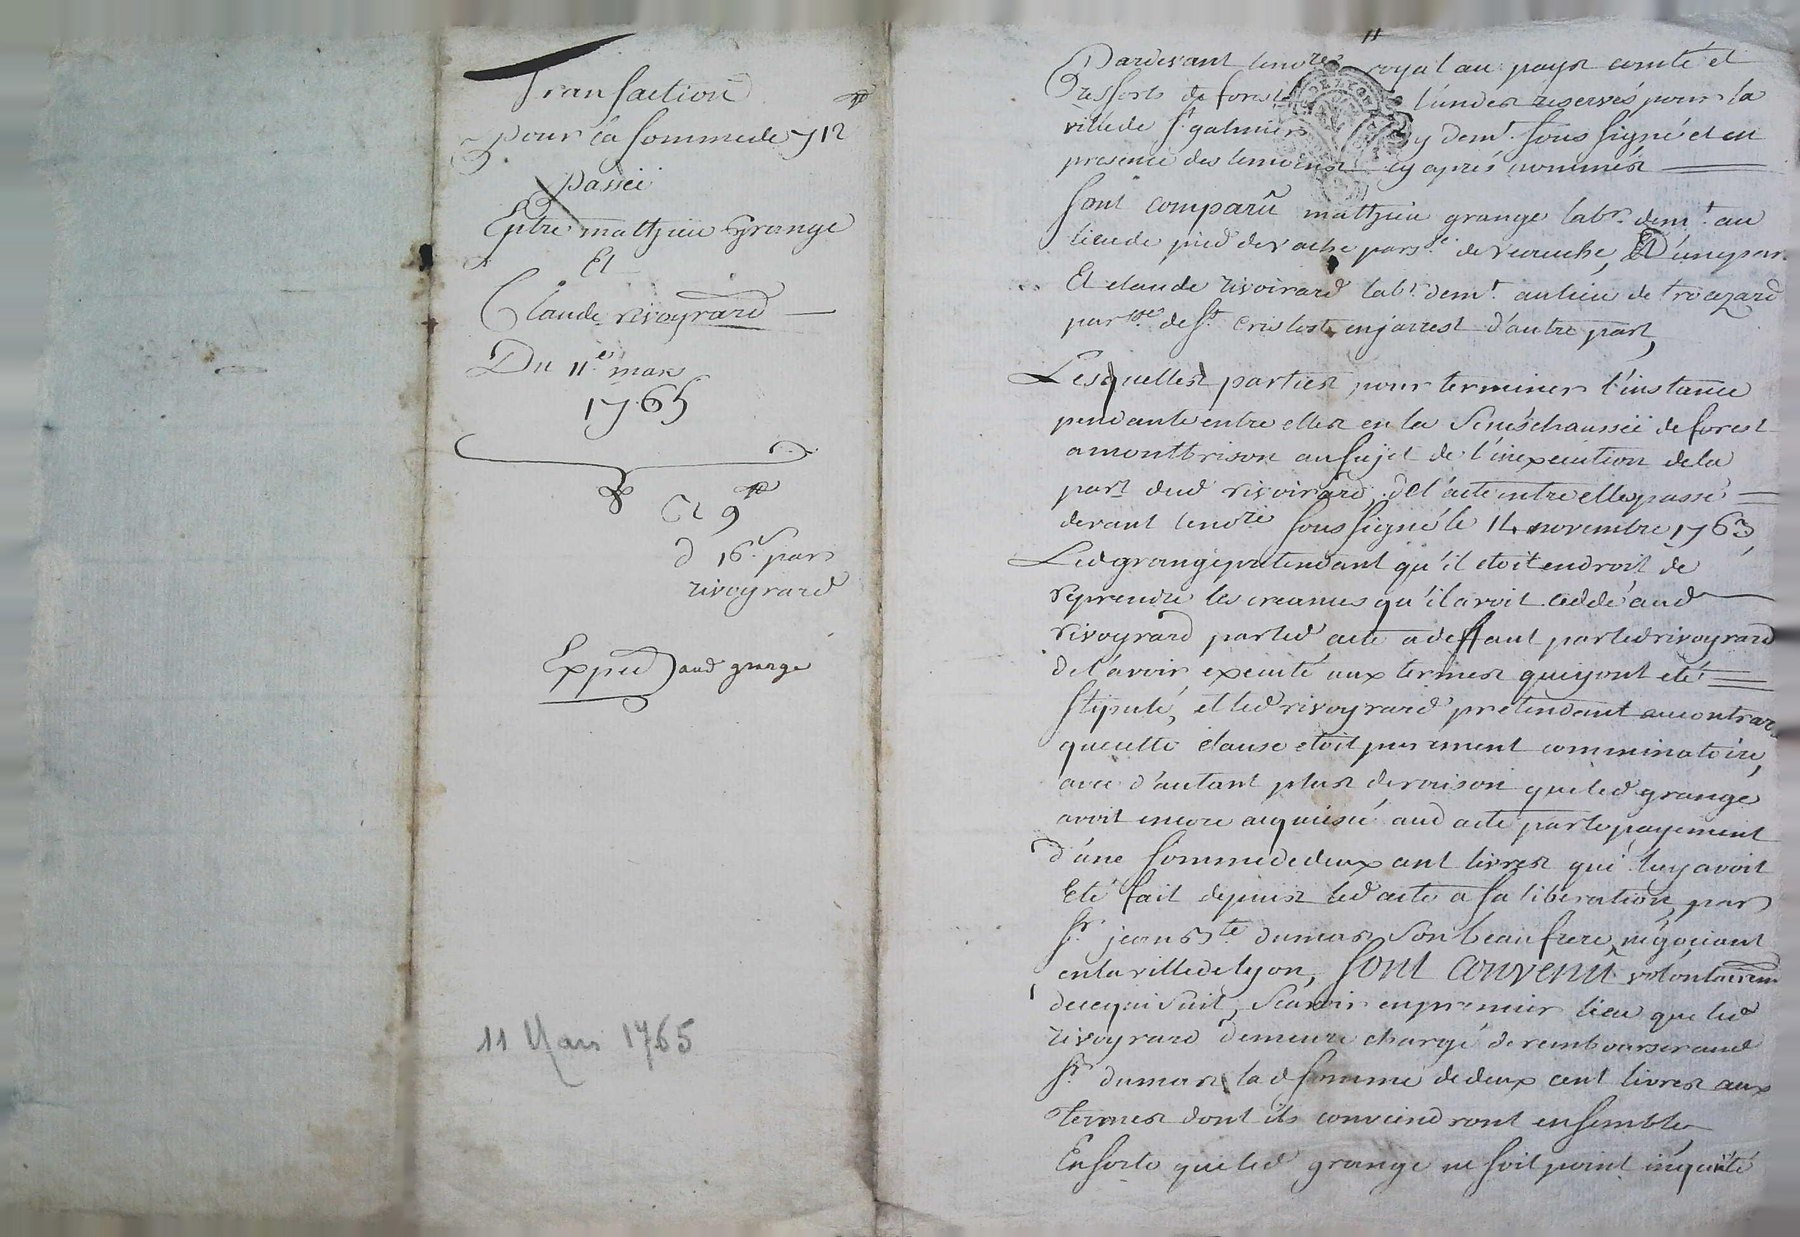 Transaction
pour la somme de 712
passée
Entre matthieu grange
Et
Claude rivoyrard
Du 11e mars
1765
Ct 9
d 16s par
rivoyrard
Exped aud grange
11 Mars 1765
Pardevant le nore royal au pays comté et
ressorts de forest reservé pour la
ville de st galmier y demt soussigné et en
presence des temoins cy après nommés
sont comparu matthieu grange labr demt au
lieu de pied de vache parsse de veauche, d'une part
Et claude rivoirard labr demt au lieu de
parsse de st Cristost en jarrest d'autre part,
Lesquelles parties pour terminer l'instance
pendante entre elles en la Sénéchaussée de forest
a montbrison au sujet de l'inexecution de la
part dud rivoirard, de l'acte entre elles passé
devant le nore soussigné le 14 novembre 1763,
Led grange pretendant qu'il etoit en droit de
reprendre les creances qu'il avoit cedé aud
rivoyrard par led acte a deffaut par led rivoyrard
de l'avoir executé aux termes qui y ont eté
stipulé, et led rivoyrard pretendant au contraire
que cette clause etoit purement comminatoire,
avec d'autant plus de raison que led grange
avoit encore acquiescé aud acte par le payement
d'une somme de deux cent livres qui luy avoit
Eté fait depuis led acte a sa liberation par
sr jean Bte dumas son beau frere, négociant
en la ville de lyon, sont convenu volontairemt
de ce qui suit, scavoir en premier lieu que led
rivoyrard demeure chargé de rembourser aud
sr dumas lad somme de deux cent livres aux
termes dont ils conviendront ensemble
En sorte que led grange ne soit point inquieté